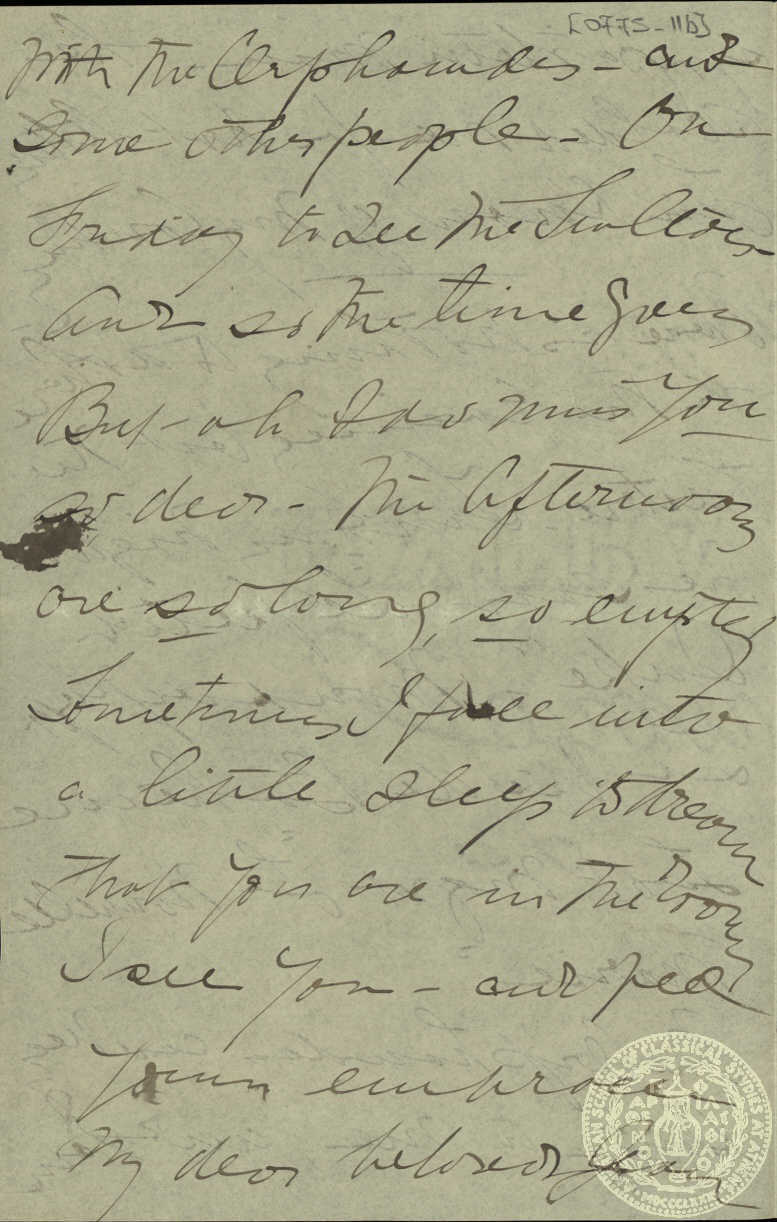 [OFFS-11b]
With the Orphanides - and
Some other people - On
Friday to see the
And so the time goes
But - oh I do miss You
so dear - The Afternoons
are so long, so empty
Sometimes I fall into
a little sleep to dream
that you are in the room
I see You - and feel
Your embraces
My dear beloved
AMERICAN SCHOOL OF CLASSICAL STUDIES AT ATHENS
MDCCCLXXXI